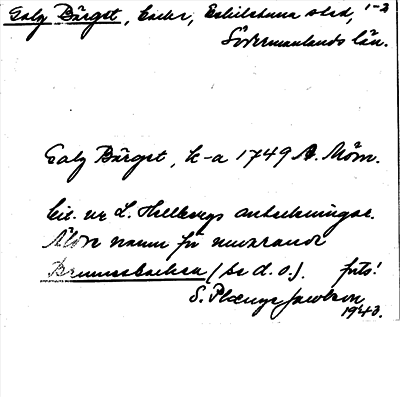 Galg Bärget, backe, Eskilstuna stad, 1-2
Södermanlands län.
Galg Bärget, k-a 1749 A. Mörn.
Cit. ur L. Hellbergs anteckningar.
Äldre namn för nuvarande
Brunnsbacken (se d. o.). forts!
S. Plænge Jacobson
1943.